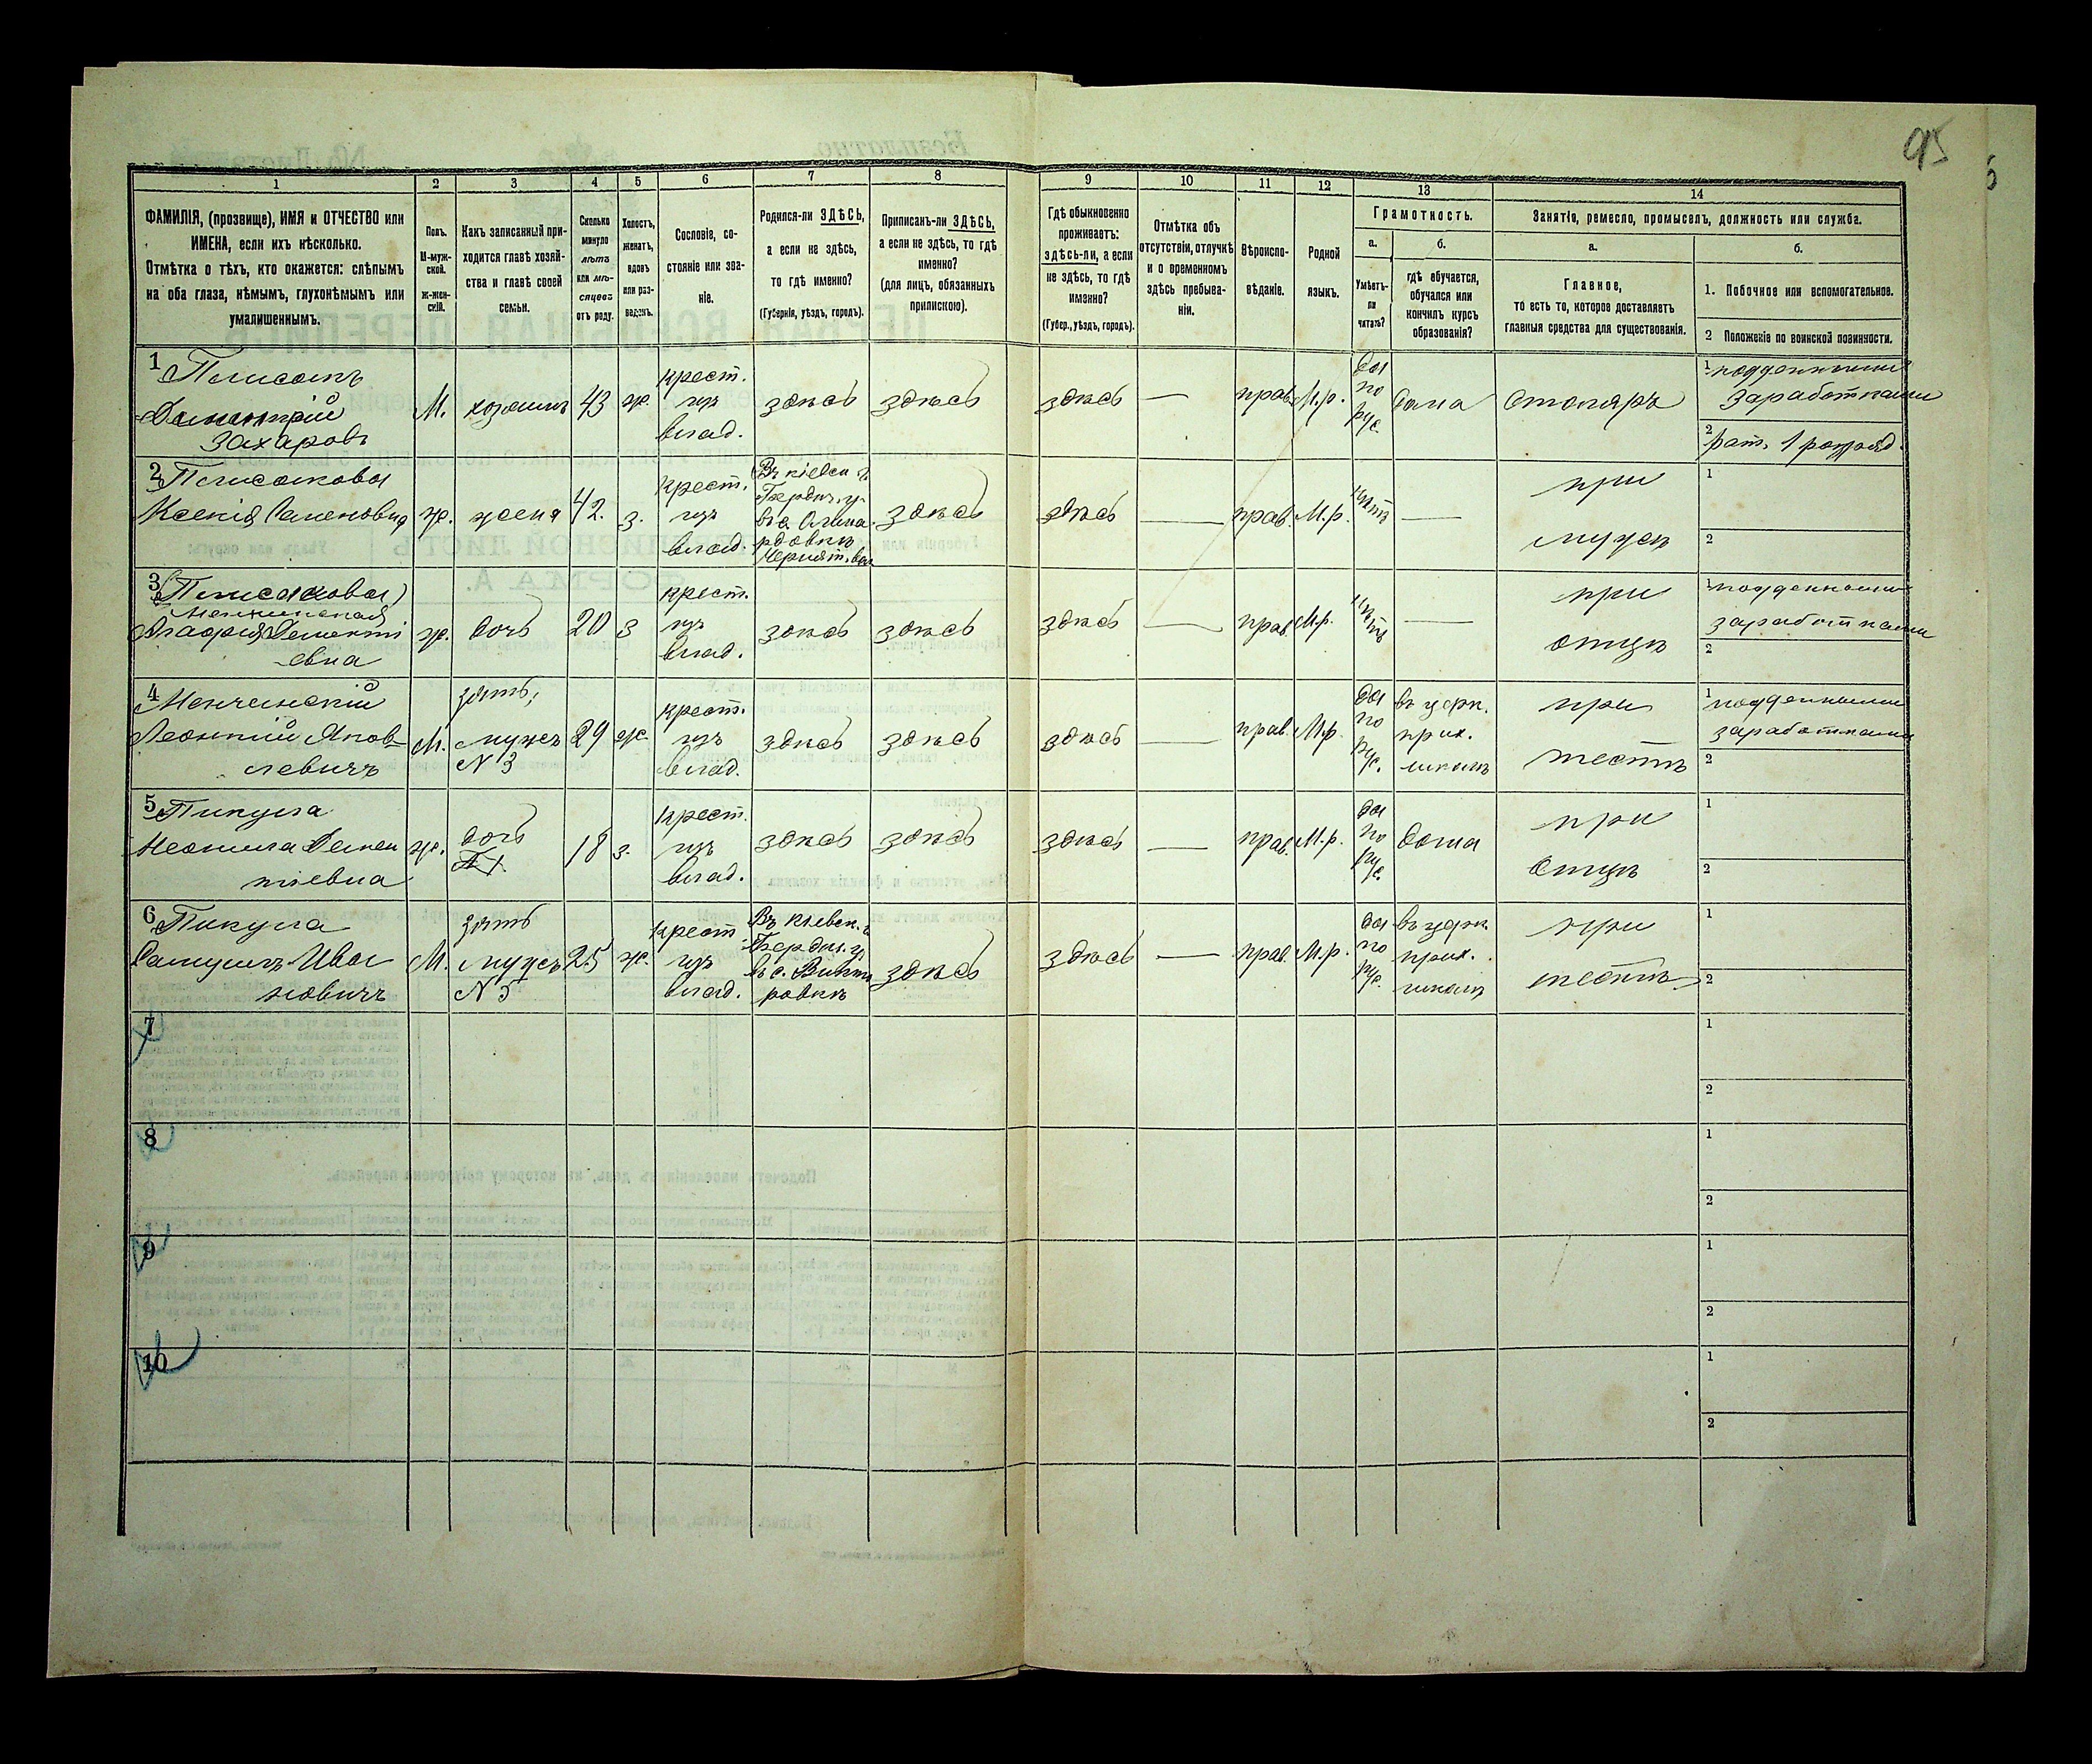 95
1 2 3 4 5 6 7 8 9 10 11 12 13 14
ФАМИЛІЯ, (прозвище), ИМЯ и ОТЧЕСТВО или
ИМЕНА, если ихъ нѣсколько.
Отмѣтка о тѣхъ, кто окажется: слѣпымъ
на оба глаза, нѣмымъ, глухонѣмымъ или
умалишеннымъ.
Полъ.
М-муж-
ской.
ж-жен-
скій.
Какъ записанный при-
ходится главѣ хозяй-
ства и главѣ своей
семьи.
Сколько
минуло
лѣтъ
или мѣ-
сяцевъ
отъ роду.
Холостъ,
женатъ,
вдовъ
или раз-
веденъ.
Сословіе, со-
стояніе или зва-
ніе.
Родился-ли ЗДѢСЬ,
а если не здѣсь,
то гдѣ именно?
(Губернія, уѣздъ, городъ).
Приписанъ-ли ЗДѢСЬ,
а если не здѣсь, то гдѣ
именно?
(для лицъ, обязанныхъ
припискою).
Гдѣ обыкновенно
проживаетъ:
здѣсь-ли, а если
не здѣсь, то гдѣ
именно?
(Губер., уѣздъ, городъ).
Отмѣтка объ
отсутствіи, отлучкѣ
и о временномъ
здѣсь пребыва-
ніи.
Вѣроиспо-
вѣданіе.
Родной
языкъ.
Грамотность.
а.
Умѣетъ-
ли
читать?
б.
гдѣ обучается,
обучался или
кончилъ курсъ
образованія?
Занятіе, ремесло, промыселъ, должность или служба.
а.
Главное,
то есть то, которое доставляетъ
главныя средства для существованія.
б.
1. Побочное или вспомогательное.
2 Положеніе по воинской повинности.
1
Захаровъ
М.
хозяинъ
43
ж.
крест.
изъ
влад.
здѣсь
здѣсь
здѣсь
—
прав.
М.р.
да
по
рус.
дома
столяръ
1 поденными
заработками
2 рат. 1 разряд.
2
Ксенія Семеновна
ж.
жена
42.
з.
крест.
изъ
влад.
Въ кіевск. г.
Бердич. у.
здѣсь
здѣсь
—
прав.
М.р.
нѣтъ
—
при
мужѣ
1
2
3
евна
ж.
дочь
20
з
крест.
изъ
влад.
здѣсь
здѣсь
здѣсь
—
прав.
М.р.
нѣтъ
—
при
отцѣ
1 поденными
заработками
2
4
Менчинскій
Леонтій Яков-
левичъ
М.
зять,
мужъ
N 3
29
ж.
крест.
изъ
влад.
здѣсь
здѣсь
здѣсь
—
прав.
М.р.
да
по
рус.
въ церк.
прих.
школѣ
при
тестѣ
1 поденными
заработками
2
5
Пикула
Неонила Демен
тіевна
ж.
дочь
18
з.
крест.
изъ
влад.
здѣсь
здѣсь
здѣсь
—
прав.
М.р.
да
по
рус.
дома
при
отцѣ
1
2
6
Пикула
Самуилъ Ива
новичъ
М.
зять
мужъ
N 5
25
ж.
крест
изъ
влад.
Въ кіевск. г.
Бердич. у.
здѣсь
здѣсь
—
прав.
М.р.
да
по
рус.
въ церк.
прих.
школѣ
при
тестѣ
1
2
7
1
2
8
1
2
9
1
2
10
1
2